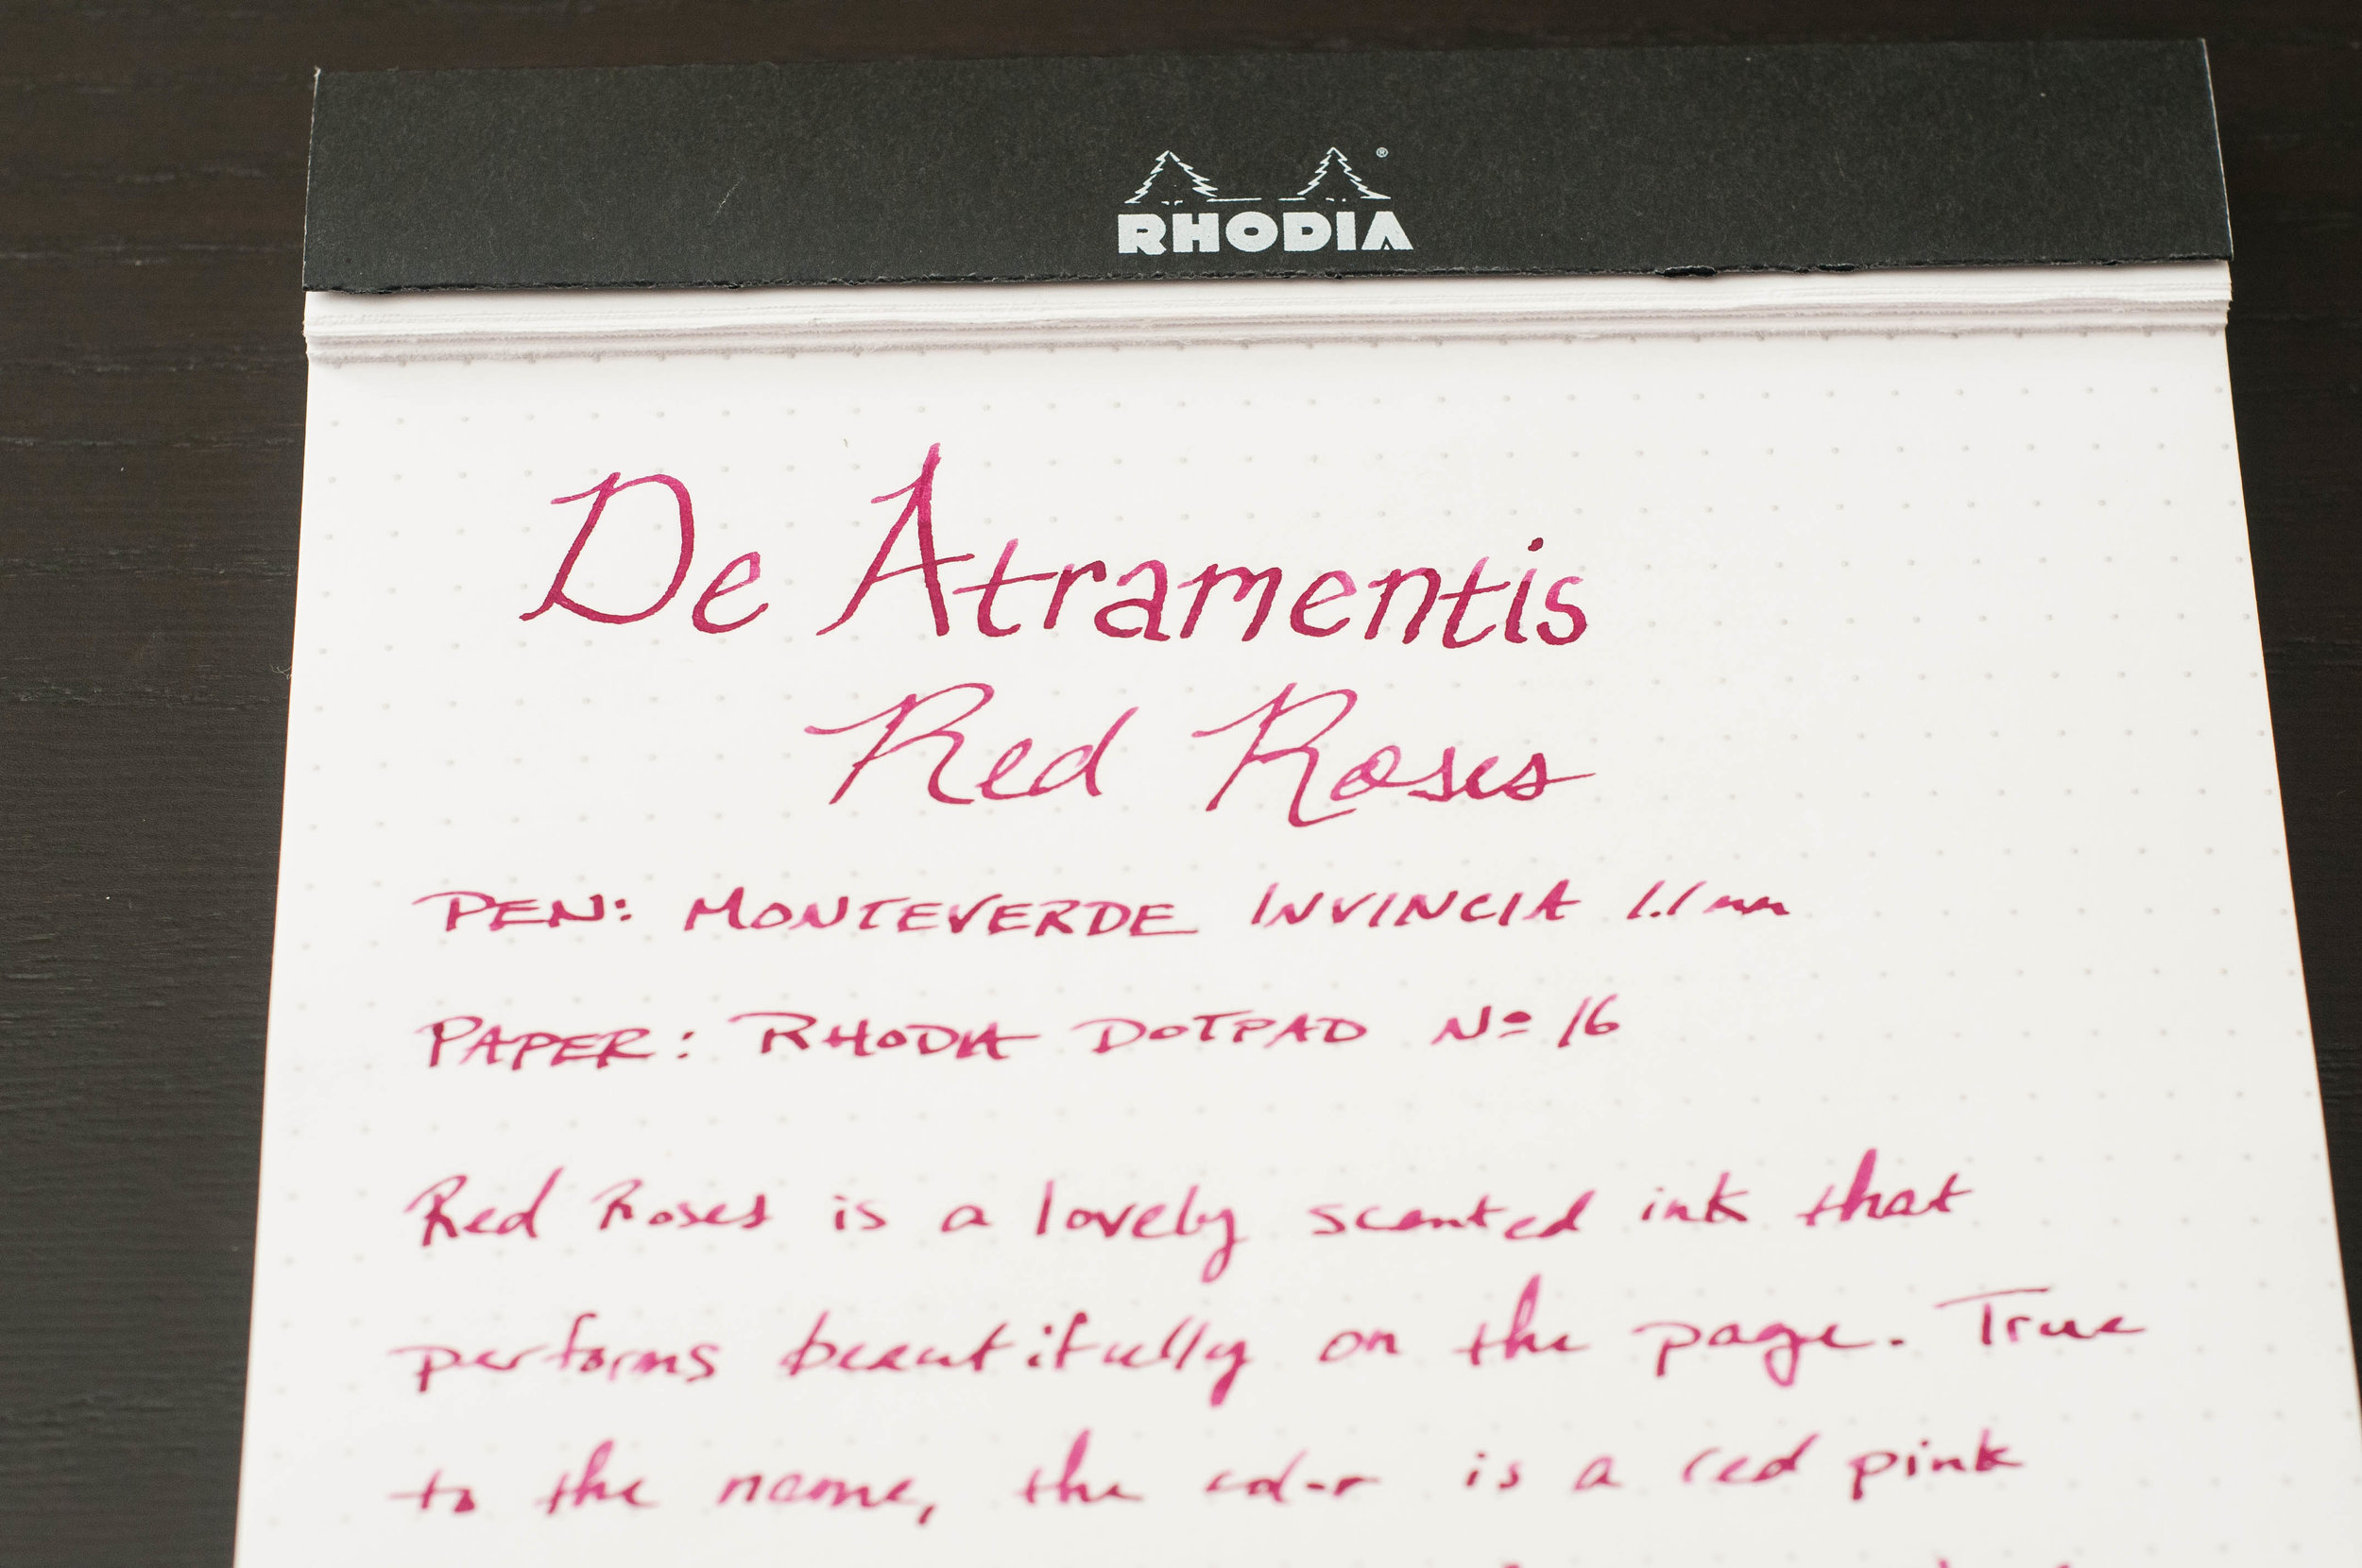 RHODIA®
De Atramentis
Red Roses
PEN: MONTEVERDE INVINCIA 1.1mm
PAPER: RHODIA DOTPAD Nº 16
Red Roses is a lovely scented ink that
performs beautifully on the page. True
to the name, the color is a red pink